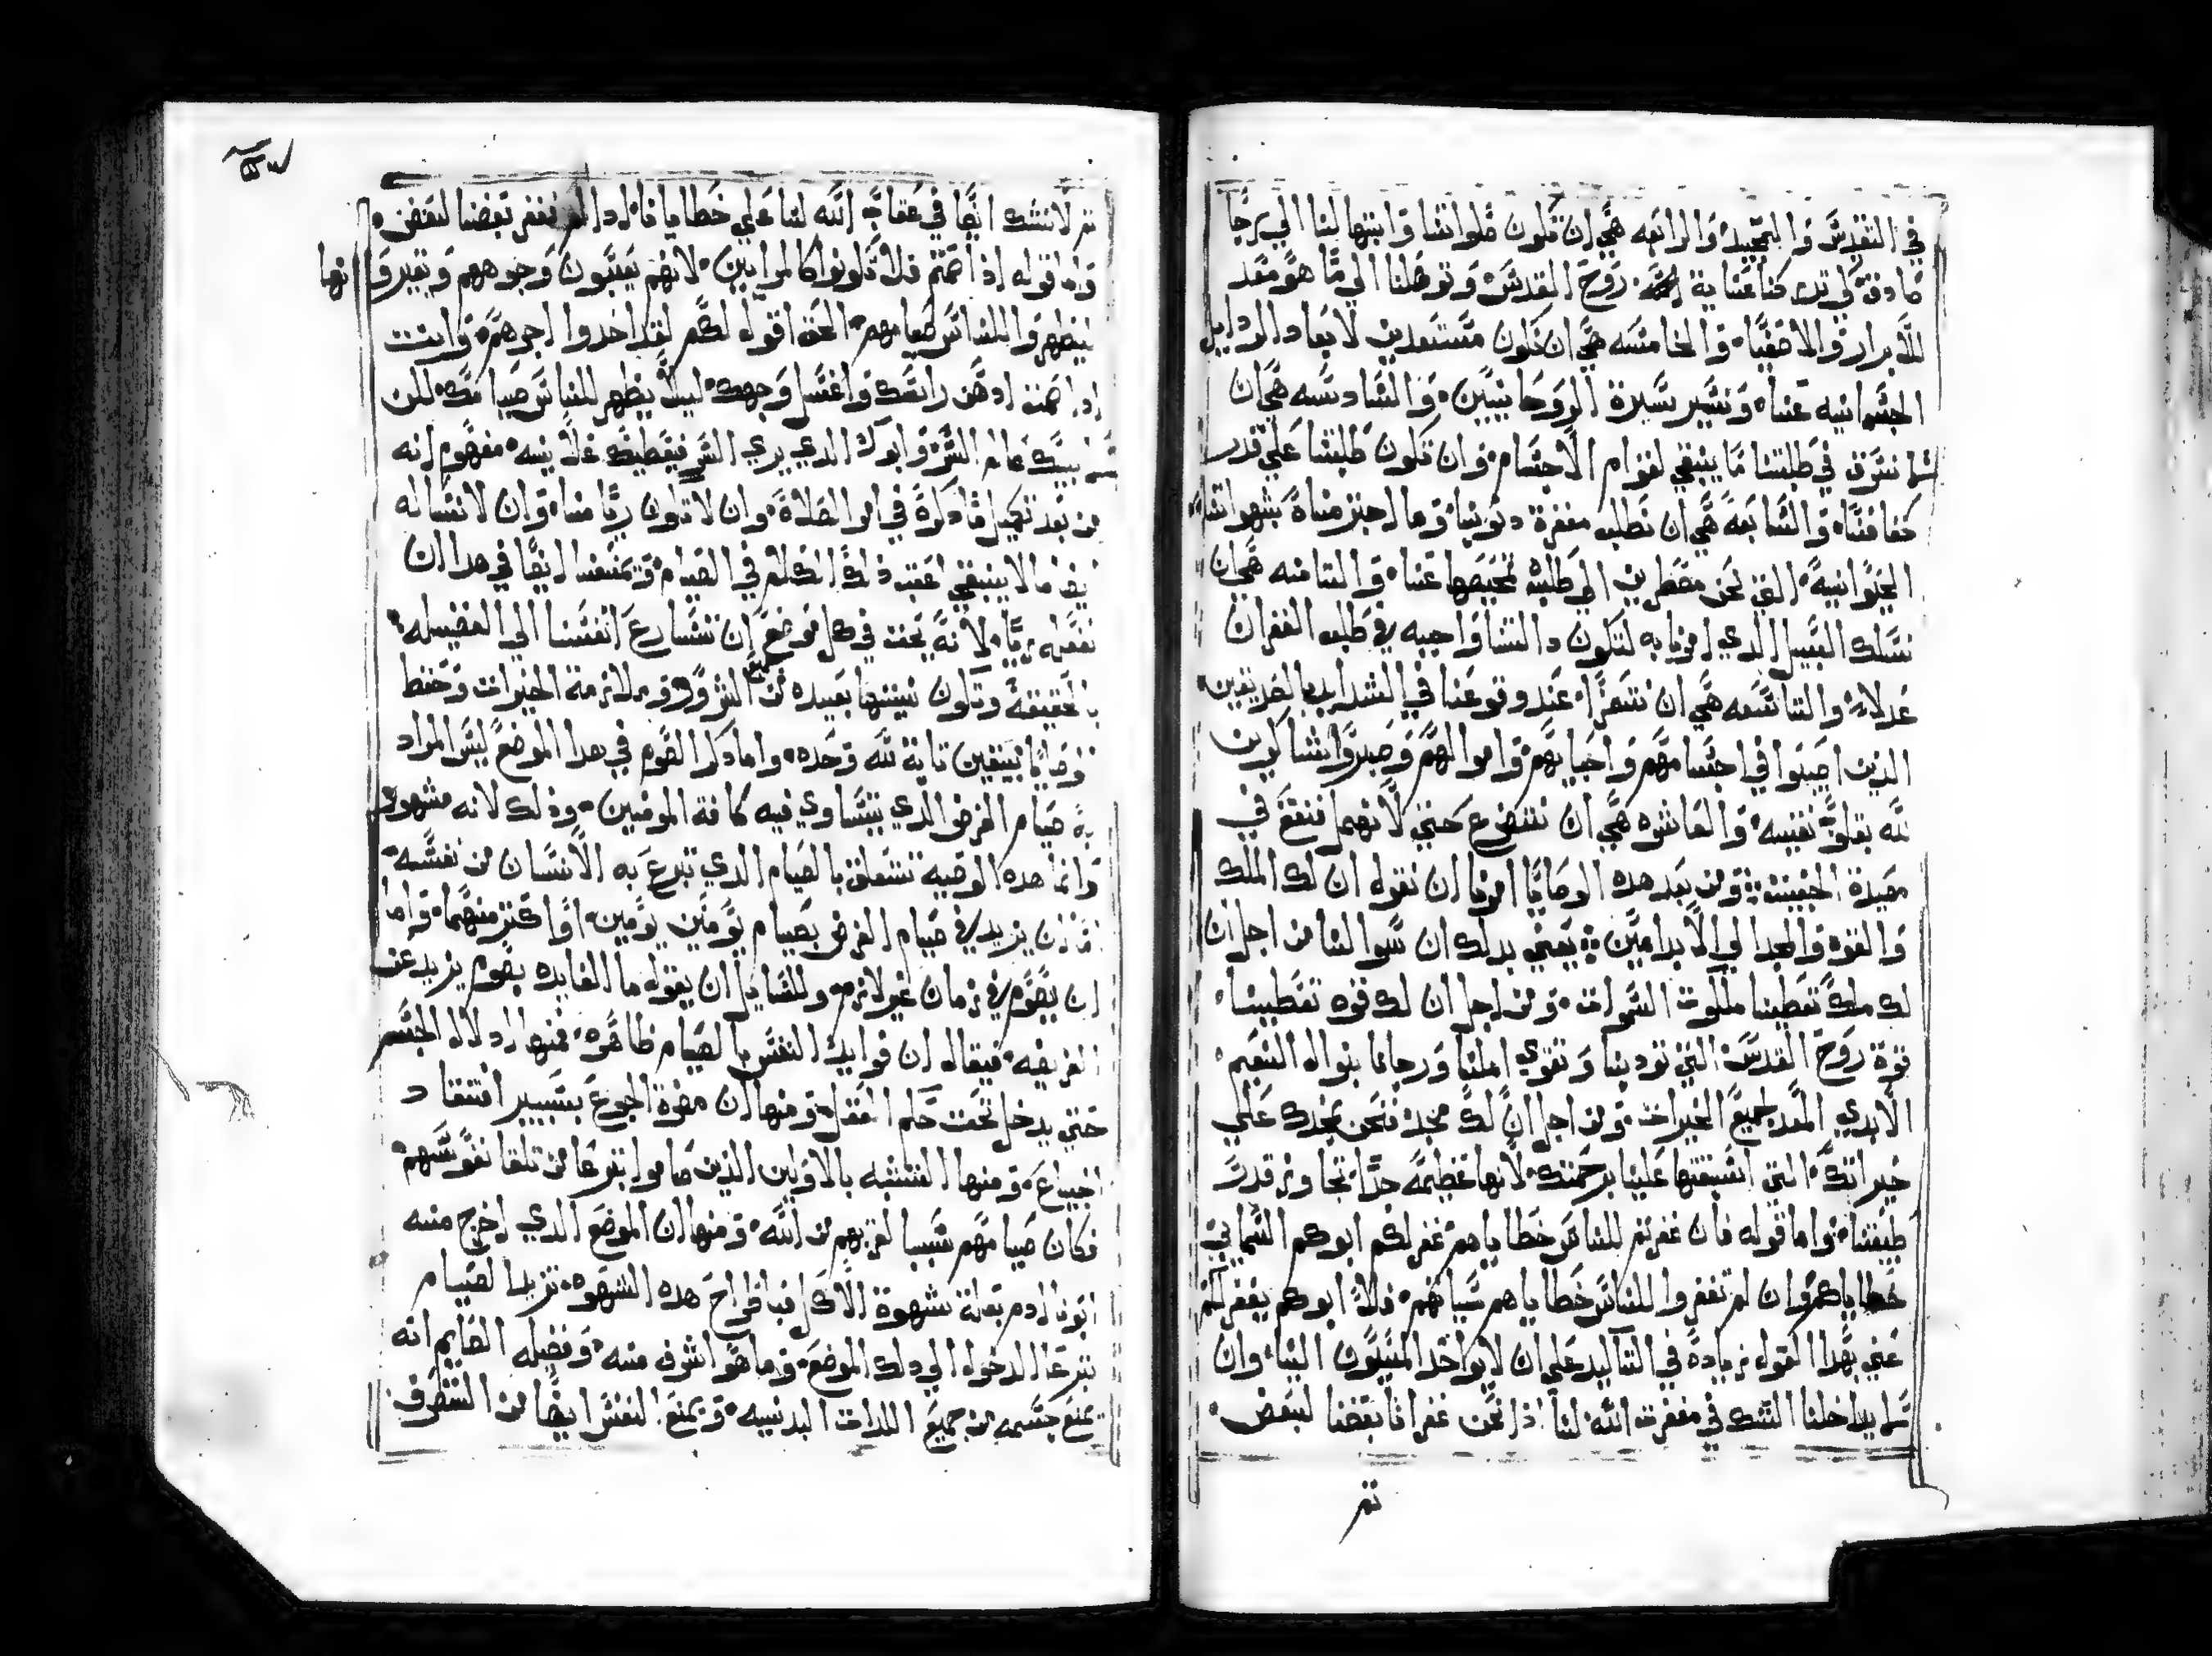 في التقديس والتمجيد والرابعه هي ان تكون صلواتنا وابتهالنا الي رجا
صادق لي تدركنا عناية روح القدس وتوصلنا الي ما هو معد
للابرار والاصفيا والخامسه هي ان نكون مستعدين لابعاد الردايل
الجسمانيه عنا ونسير سيرة الروحانيين والسادسه هي ان
لا نسرف في طلبتنا ما ينبغي لقوام الاجسام وان تكون طلبتنا علي قدر
كفافنا والسابعه هي ان نطلب مغفرة دنوبنا وما اجترمناه بشهواتنا
الحيوانيه التي نحن مضطرين الي طلبة تمحيصها عنا والتامنه هي ان
نسلك السبيل الدي امرنا به لتكون دالتنا واجبه في طلب الغفران
عدلا والتاسعه هي ان نتعزا عند وقوعنا في الشدايد بالصديقين
الدين اصيبوا في اجسامهم واحبايهم واموالهم وصبروا شاكرين
لله بقلوب نقيه والعاشره هي ان نتضرع حتي لا نهمل فنقع في
مصيدة الخبيث ومن بعد هده الوصايا امرنا ان نقول ان لك الملك
والقوه والمجد الي الابد امين يعني بدلك ان سوالنا من اجل ان
لك ملك تعطينا ملكوت السموات ومن اجل ان لك قوه تعطينا
قوة روح القدس التي تودبنا وتقوي املنا ورجانا بنوال النعيم
الابدي المعد لجميع الخيرات ومن اجل ان لك مجد فنحن نمجدك علي
خيراتك التي اسبغتها علينا برحمتك لانها عظيمه جدا تجاوز قدر
طبيعتنا واما قوله فان غفرتم للناس خطاياهم غفر لكم ابوكم السماني
خطاياكم وان لم تغفروا للناس خطاياهم سياتهم فلا ابوكم يغفر لكم
عني بهدا القول زياده في التاكيد علي ان لا نواخد المسيون الينا وان
لا يداخلنا الشك في مغفرت الله لنا ادا نحن غفرنا بعضنا لبعض
تم
تم لا نشك ايضا في عقاب الله لنا علي خطايانا ادا لم نغفر بعضنا لبعض
واما قوله اذا صمتم فلا تكونوا كالمرايين لانهم يعبسون وجوههم ويغيروا نها
ليظهروا للناس صيامهم الحق اقول لكم لقد اخدوا اجرهم وانت
ادا صمت ادهن راسك واغسل وجهك ليلا يظهر للناس صيامك لكن
لابيك عالم السر وابوك الدي يري السر فيعطيك علانيه مفهوم انه
من بعد تكميل ما دكره في امر الصلاة وان لا تكون ريا منا وان لا نساله
فيها ما لا ينبغي اعقب ذلك الكلام في الصيام ويمنعنا ايضا في هدا ان
نفعله ريا لانه يحث في كل موضع ان نسارع انفسنا الي الفضيله
بالحقيقه وتكون نيتها بعيده من جميع الشرور وملازمة الخيرات وحفظ
الوصايا بيقين تابة لله وحده واما دكر الصوم في هدا الموضع ليس المراد
به صيام الفرض الدي يتساوي فيه كافة المومنين وذلك لانه مشهور
وانما هده الوصيه تتعلق بالصيام الدي تبرع به الانسان من نفسه
مثل ان يزيد في صيام الفرض بصيام يومين يومين او اكتر منهما واما
ان يصوم في زمان غير لازم وللسايل ان يقول ما الفايده بصوم يزيد عن
الفريضه فيقال ان فوايد النفس بالصيام ظاهره فمنها ادلال الجسم
حتي يدخل تحت حكم العقل ومنها ان مضرة الجوع بتسيير افتقاد
الجياع ومنها التشبه بالاولين الذين صاموا تبرعا من تلقا نفوسهم
فكان صيامهم سببا لقربهم من الله ومنها ان الموضع الدي اخرج منه
ابونا ادم بعلة شهوة الاكل فباطراح هده الشهوه نريد الصيام
تبرعا الدخول الي دلك الموضع وما هو اشرف منه وفضيله الصايم انه
يمنع جسمه من جميع اللدات البدنيه ويمنع النفس ايضا من التصرف